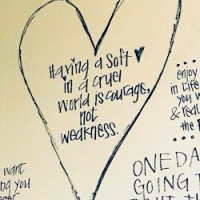 Having a Soft ♥
in a cruel
world is courage,
not
weakness.
enjoy
in Life
you w
& real
the
want
ng you
ONE DA
GOING T